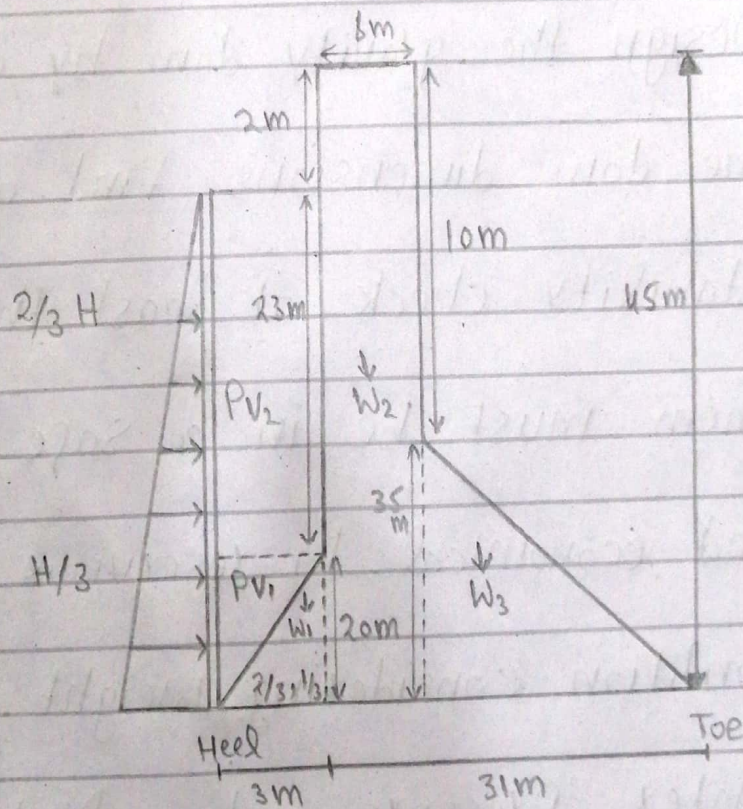 6m
2m
10m
45m
2/3 H
23m
PV2
W2
35
m
H/3
PV1
W1
20m
W3
2/3, 1/3
Heel
Toe
3m
31m